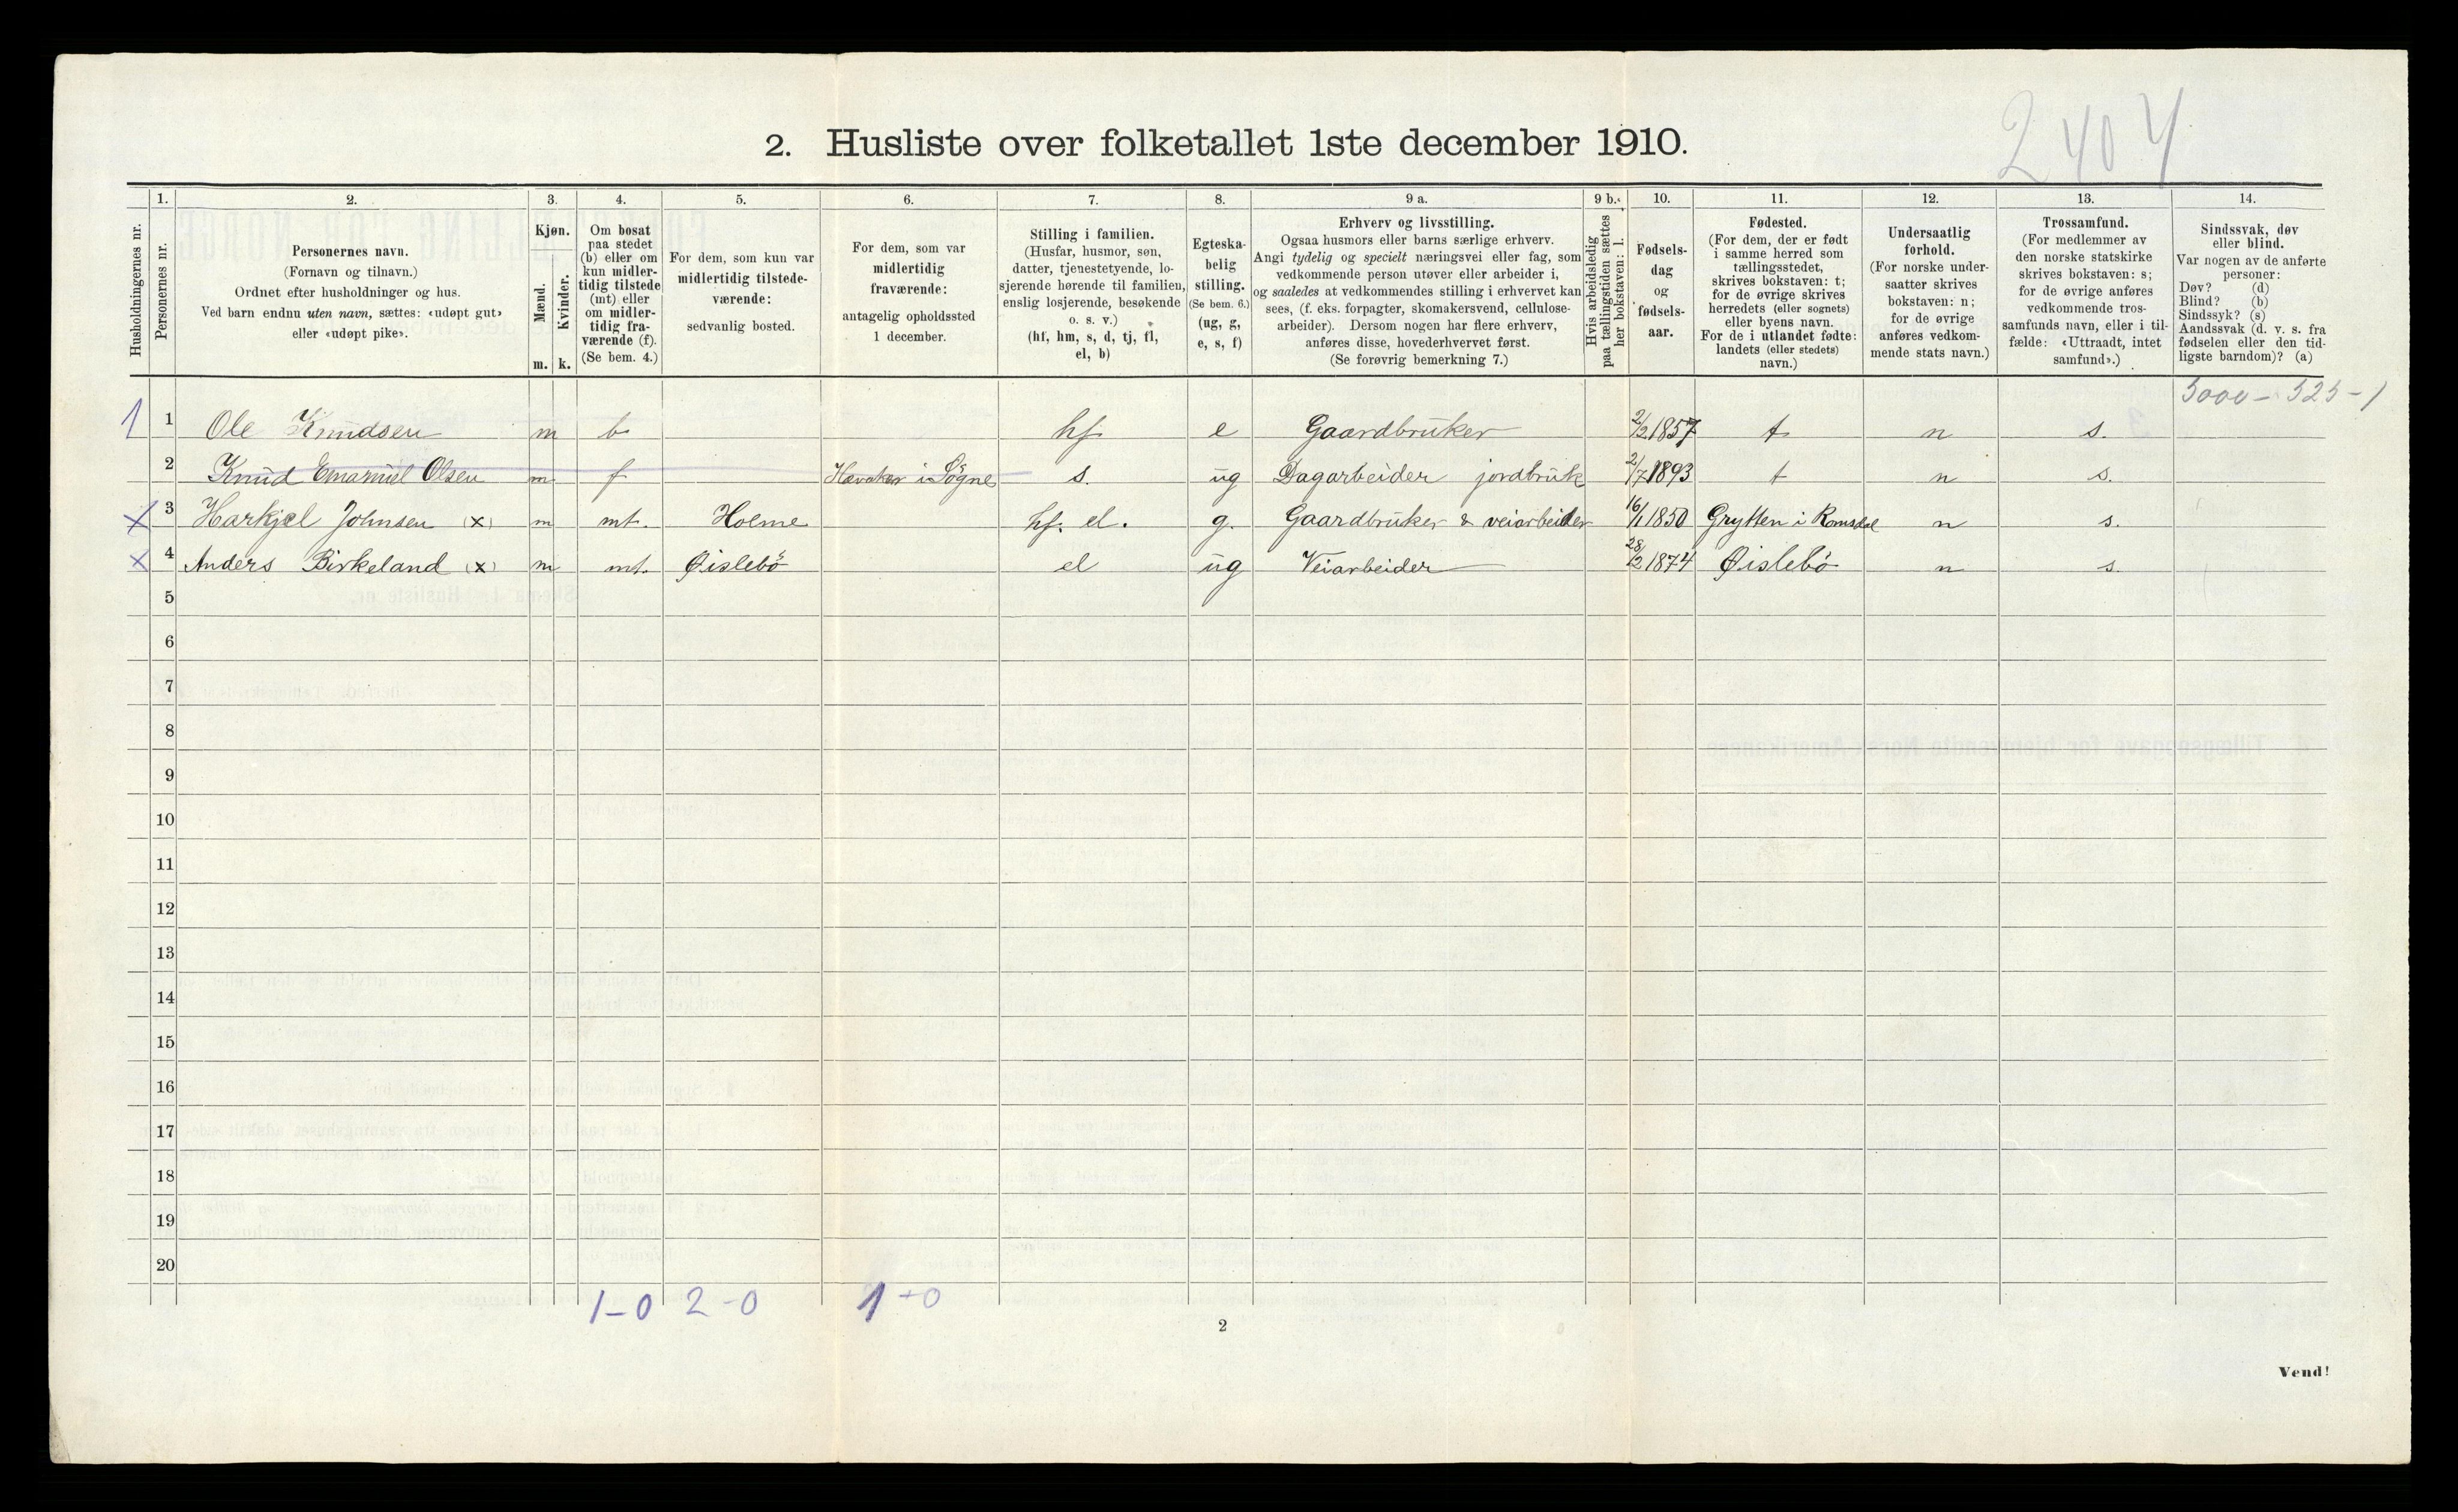 2404
2. Husliste over folketallet 1ste december 1910.
Husholdningernes nr.
1.
Personernes nr.
2.
Personernes navn.
(Fornavn og tilnavn.)
Ordnet efter husholdninger og hus.
Ved barn endnu uten navn, sættes: «udøpt gut»
eller «udøpt pike».
3.
Kjøn.
Mænd.
Kvinder.
m. k.
4.
Om bosat
paa stedet
(b) eller om
kun midler-
tidig tilstede
(mt) eller
om midler-
tidig fra-
værende (f).
(Se bem. 4.)
5.
For dem, som kun var
midlertidig tilstede-
værende:
sedvanlig bosted.
6.
For dem, som var
midlertidig
fraværende:
antagelig opholdssted
1 december.
7.
Stilling i familien.
(Husfar, husmor, søn,
datter, tjenestetyende, lo-
sjerende hørende til familien,
enslig losjerende, besøkende
o. s. v.)
(hf, hm, s, d, tj, fl,
el, b)
8.
Egteska-
belig
stilling.
(Se bem. 6.)
(ug, g,
e, s, f)
9 a.
Erhverv og livsstilling.
Ogsaa husmors eller barns særlige erhverv.
Angi tydelig og specielt næringsvei eller fag, som
vedkommende person utøver eller arbeider i,
og saaledes at vedkommendes stilling i erhvervet kan
sees, (f. eks. forpagter, skomakersvend, cellulose-
arbeider). Dersom nogen har flere erhverv,
anføres disse, hovederhvervet først.
(Se forøvrig bemerkning 7.)
9 b.
Hvis arbeidsledig
paa tællingstiden sættes
her bokstaven: l.
10.
Fødsels-
dag
og
fødsels-
aar.
11.
Fødested.
(For dem, der er født
i samme herred som
tællingsstedet,
skrives bokstaven: t;
for de øvrige skrives
herredets (eller sognets)
eller byens navn.
For de i utlandet fødte:
landets (eller stedets)
navn.)
12.
Undersaatlig
forhold.
(For norske under-
saatter skrives
bokstaven: n;
for de øvrige
anføres vedkom-
mende stats navn.)
13.
Trossamfund.
(For medlemmer av
den norske statskirke
skrives bokstaven: s;
for de øvrige anføres
vedkommende tros-
samfunds navn, eller i til-
fælde: «Uttraadt, intet
samfund».)
14.
Sindssvak, døv
eller blind.
Var nogen av de anførte
personer:
Døv? (d)
Blind? (b)
Sindssyk? (s)
Aandssvak (d. v. s. fra
fødselen eller den tid-
ligste barndom)? (a)
5000 - 525 - 1
1 1 Ole Knudsen m b hf e Gaardbruker 2/2 1857 t n s.
2 Knud Emanuel Olsen m f i Søgne s. ug Dagarbeider jordbruk 2/7 1893 t n s.
x 3 Harkjel Johnsen (x) m mt. Holme hf. el. g. Gaardbruker & veiarbeider 16/1 1850 Grytten i Romsdal n s.
x 4 Anders Birkeland (x) m mt. Øislebö el ug Veiarbeider 28/2 1874 Øislebö n s.
5
6
7
8
9
10
11
12
13
14
15
16
17
18
19
20
1-0 2-0 1-0
2
Vend!